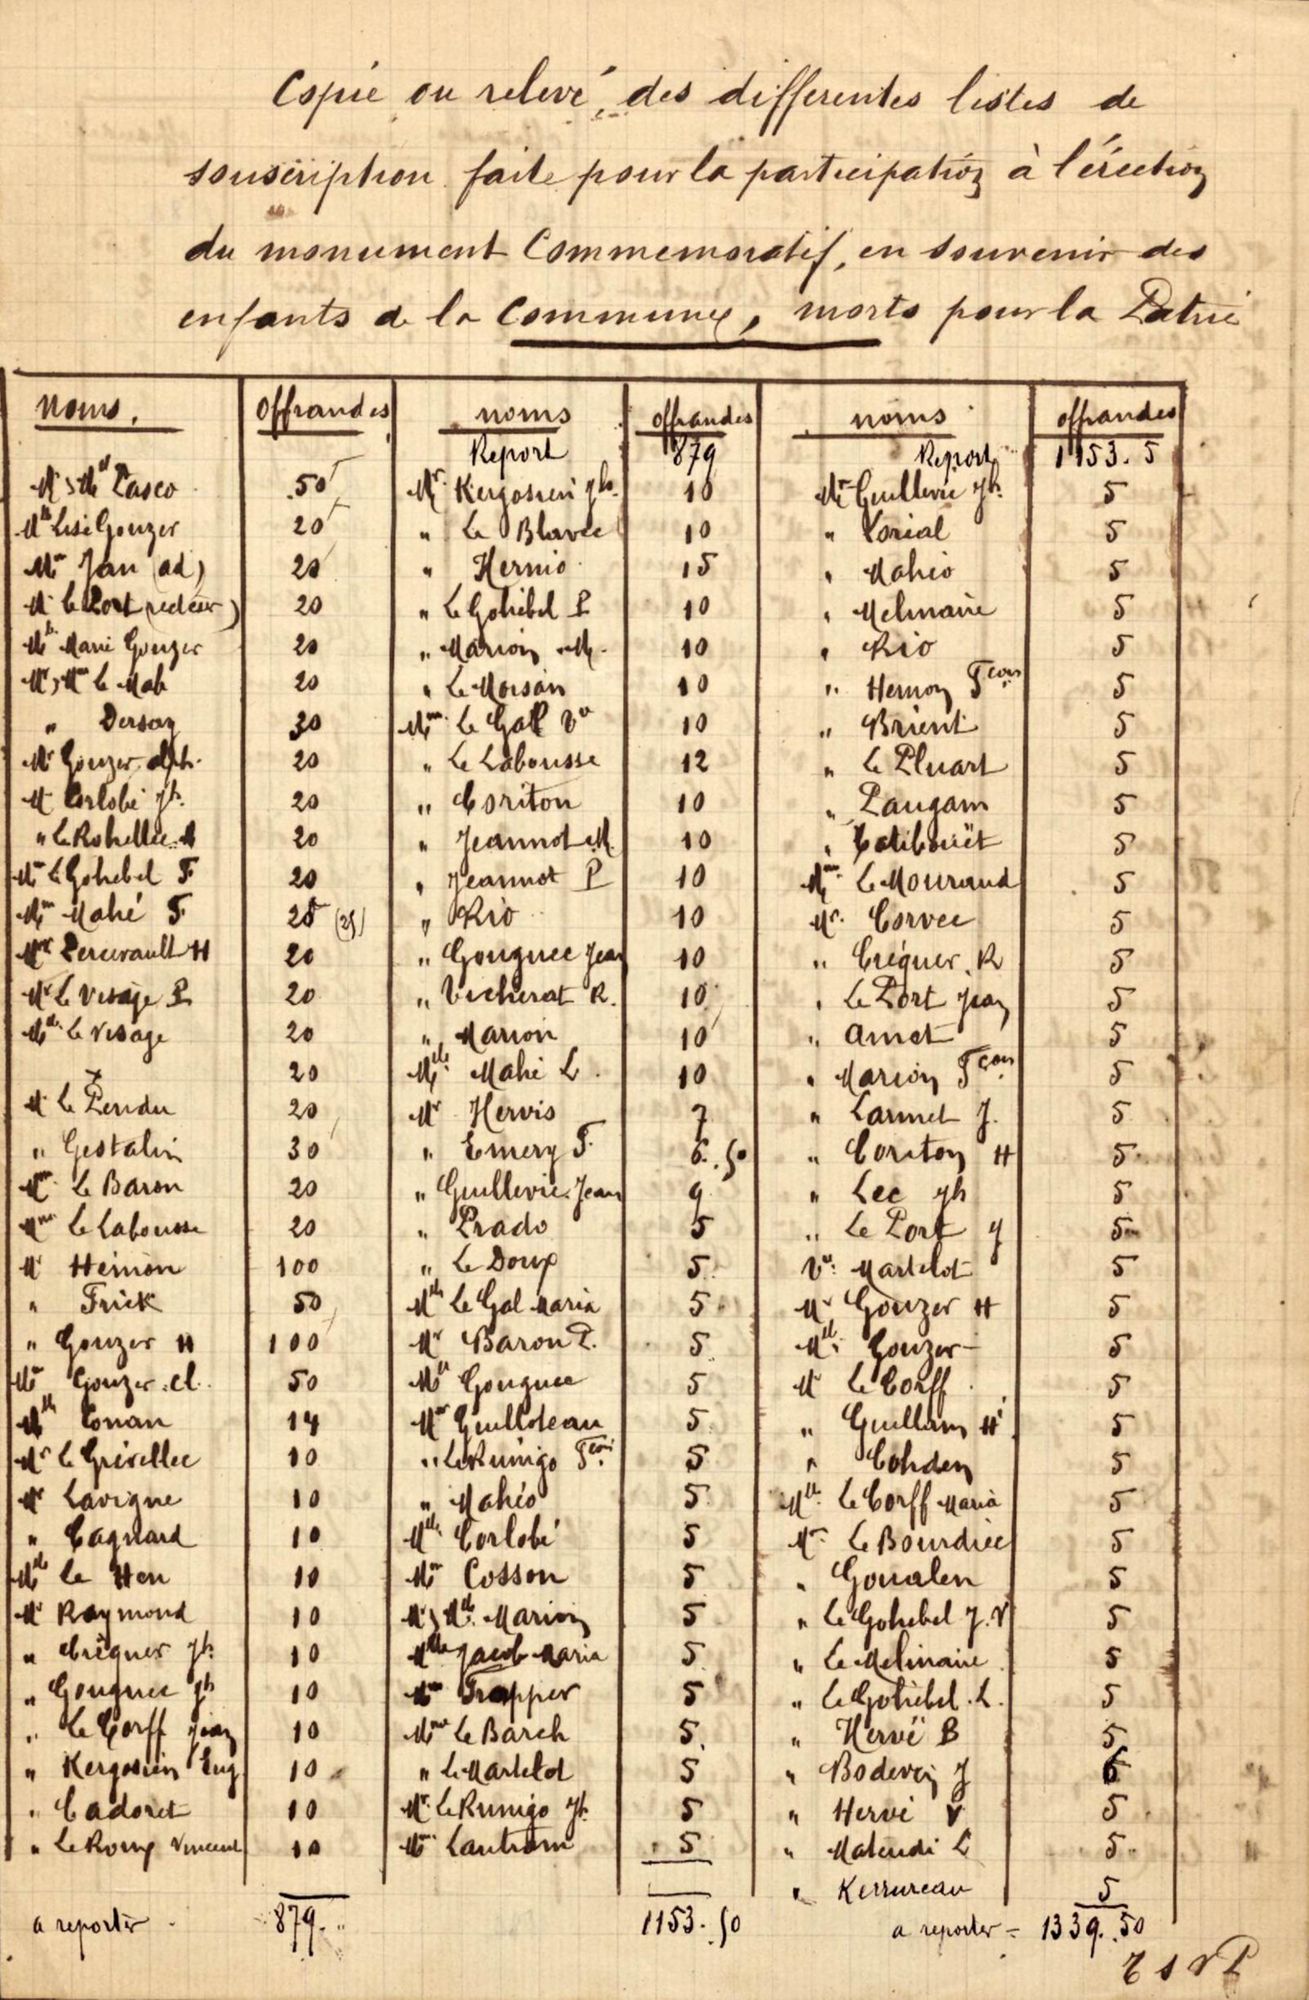 Copie ou relevé des differentes listes de
souscription faite pour la participation à l'érection
du monument Commemoratif, en souvenir des
enfants de la Commune, morts pour la Patrie
noms. offrandes noms offrandes noms offrandes
Report 879 Report 1153.5
Mr & Me Pasco 50 Mr Kergosien Jh. 10 Mr Guillevic Jh. 5
Mlle Lise Gouzer 20 " Le Blavec 10 " Lorial 5
Mr Jan (ad) 20 " Hernio 15 " Mahéo 5
Mr Le Port (recteur) 20 " Le Gohébel P 10 " Melinaire 5
Mlle Marie Gouzer 20 " Marion M. 10 " Rio 5
Mr & Mme Le Mab 20 " Le Moisan 10 " Hernon Fçois 5
" Dersoy 30 Mme Le Gal Ve 10 " Brient 5
Mr Gouzer Alph. 20 " Le Labousse 12 " Le Pluart 5
Mr Corlobé Jh. 20 " Coriton 10 " Paugam 5
" Le Rohellec A 20 " Jeannot M. 10 " Catibouët 5
Mr Le Gohebel F. 20 " Jeannot P 10 Mme Le Mouroud 5
Mme Mahé F. 25 (25) " Rio 10 Mr. Corvec 5
Mr Percevault H 20 " Gouguec Jean 10 " Créquer. R 5
Mr Le Visage P. 20 " Vicherat R. 10 " Le Port Jean 5
Mlle Le Visage 20 " Marion 10 " Amet 5
20 Mlle Mahé L. 10 " Marion Fçois 5
Mr Le Pendu 20 Mr Hervis 7 " Larmet J. 5
" Gestalin 30 " Emery F. 6.50 " Coriton H 5
Mr Le Baron 20 " Guillevic Jean 9 " Lec Jh 5
Mme Le Labousse 20 " Prado 5 " Le Port J 5
Mr Hémon 100 " Le Doux 5 Ve Martelot 5
" Frick 50 Mlle Le Gal Maria 5 Mr Gouzer H 5
" Gouzer H 100 Mr Baron P. 5 Mlle Gouzer 5
Mme Gouzer. cl. 50 Mlle Gouguec 5 Mr Le Corff 5
Mlle Conan 14 Mr Guilloteau 5 " Guillam H 5
Mr Le Grévellec 10 " Le Runigo Fçois 5 " Cohden 5
Mr Lavigne 10 " Mahéo 5 Mlle Le Corff Maria 5
" Cagnard 10 Mlle Corlobé 5 Mr Le Bourdiec 5
Mlle Le Hen 10 Mr Cosson 5 " Goualen 5
Mr Raymond 10 Mr & Mlle Marion 5 " Le Gohebel J. V 5
" Créquer Jh. 10 Mlle Jacob Maria 5 " Le Melinaire 5
" Gouguec Jh 10 Mme Frapper 5 " Le Gohébel. L. 5
" Le Corff Jean 10 Mme Le Barch 5 " Hervé B 5
" Kergosien Eug 10 " Le Martelot 5 " Bodeven J 6
" Cadoret 10 Mr. Le Runigo Jh. 5 " Hervé V 5
" Le Roux Vincent 10 Mme Lantrom 5 " Maleudi L 5
" Kerrureau 5
a reporter 879. " 1153.50 a reporter = 1339.50
T S V P